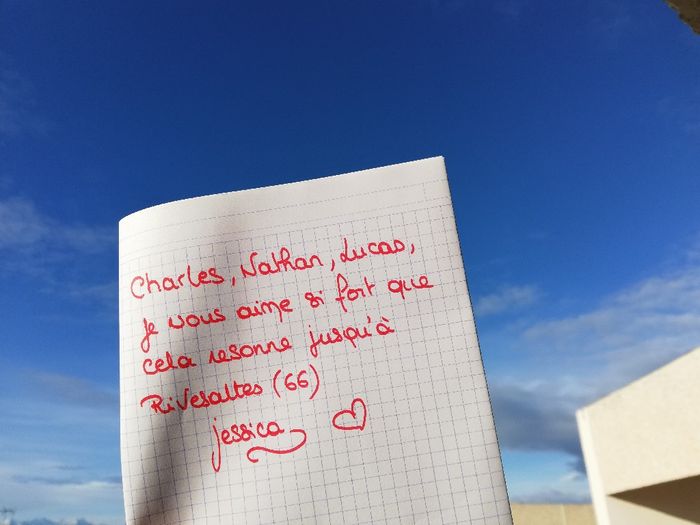 Charles, Nathan, Lucas,
je vous aime si fort que
cela resonne jusqu'à
Rivesaltes (66)
jessica